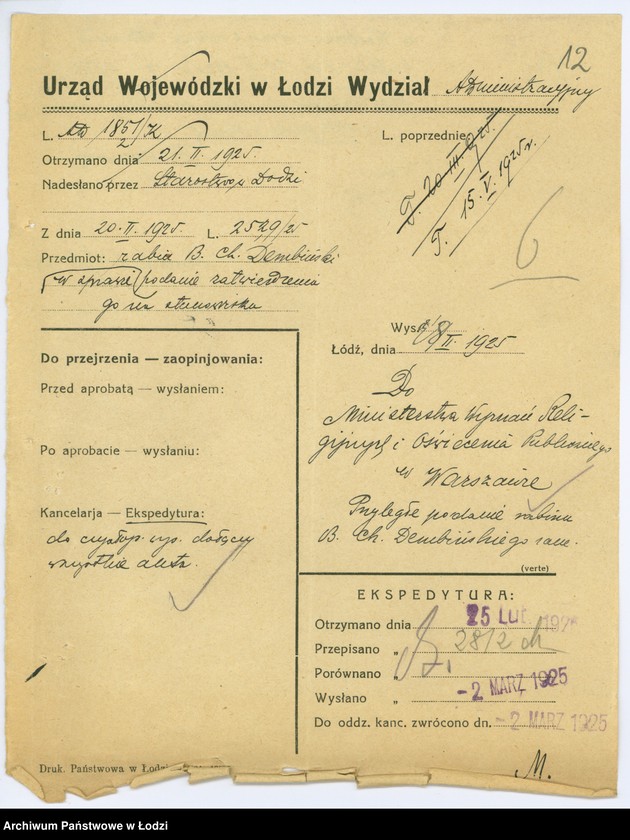 12
Urząd Wojewódzki w Łodzi Wydział Administracyjny
L. 1851/2/K
L. poprzednie
T. 20 III. 1925.
T. 15. V. 1925 r.
Otrzymano dnia 21. II. 1925.
Nadesłano przez Starostwo w Łodzi
6
Z dnia 20. II. 1925 L. 2529/25
Przedmiot: rabin B. Ch. Dembiński
w sprawie podanie zatwierdzenia
go na stanowisku
Wys.
Łódź, dnia II. 1925
Do przejrzenia — zaopinjowania:
Przed aprobatą — wysłaniem:
Po aprobacie — wysłaniu:
Kancelarja — Ekspedytura:
do wys. dołączyć
wszystkie akta.
Do
Ministerstwa Wyznań Reli-
gijnych i Oświecenia Publicznego
w Warszawie
Przyległe podanie rabina
B. Ch. Dembińskiego zam.
(verte)
EKSPEDYTURA:
Otrzymano dnia 25 LUT. 1925
Przepisano „ 28/2
Porównano „
Wysłano „ - 2 MARZ 1925
Do oddz. kanc. zwrócono dn. - 2 MARZ 1925
M.
Druk. Państwowa w Łodzi
Archiwum Państwowe w Łodzi